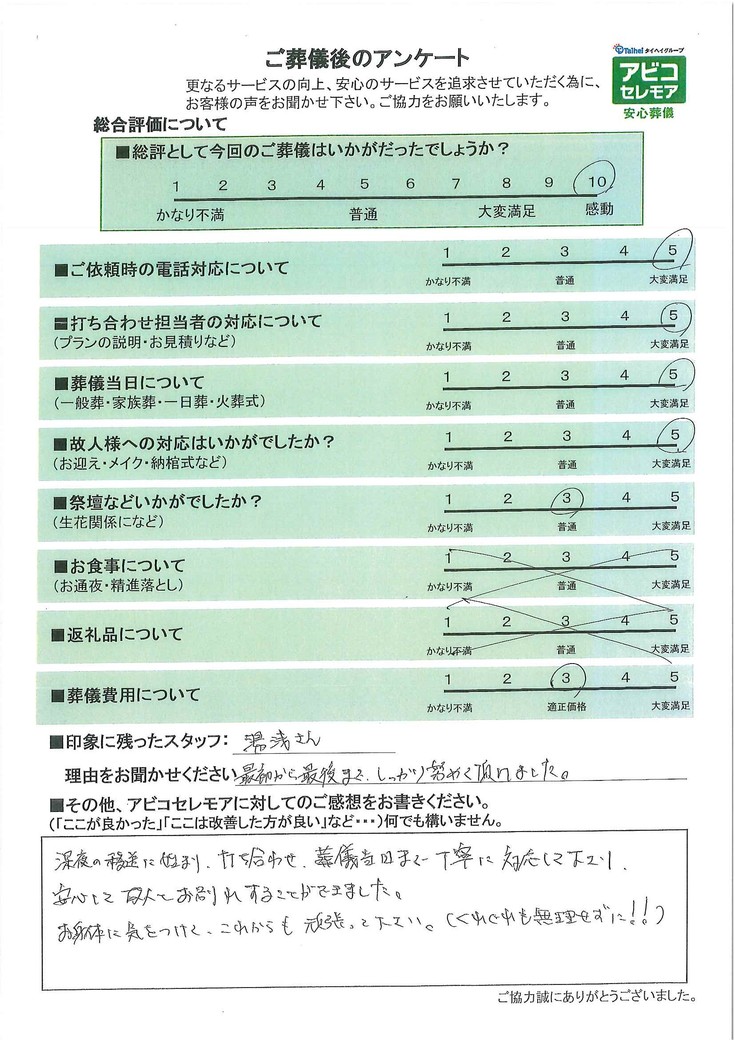 ご葬儀後のアンケート
Taihei タイヘイグループ
アビコ
セレモア
安心葬儀
更なるサービスの向上、安心のサービスを追求させていただく為に、
お客様の声をお聞かせ下さい。ご協力をお願いいたします。
総合評価について
■総評として今回のご葬儀はいかがだったでしょうか？
1 2 3 4 5 6 7 8 9 10
かなり不満 普通 大変満足 感動
■ご依頼時の電話対応について
1 2 3 4 5
かなり不満 普通 大変満足
■打ち合わせ担当者の対応について
(プランの説明・お見積りなど)
1 2 3 4 5
かなり不満 普通 大変満足
■葬儀当日について
(一般葬・家族葬・一日葬・火葬式)
1 2 3 4 5
かなり不満 普通 大変満足
■故人様への対応はいかがでしたか？
(お迎え・メイク・納棺式など)
1 2 3 4 5
かなり不満 普通 大変満足
■祭壇などいかがでしたか？
(生花関係になど)
1 2 3 4 5
かなり不満 普通 大変満足
■お食事について
(お通夜・精進落とし)
1 2 3 4 5
かなり不満 普通 大変満足
■返礼品について
1 2 3 4 5
かなり不満 普通 大変満足
■葬儀費用について
1 2 3 4 5
かなり不満 適正価格 大変満足
■印象に残ったスタッフ： 湯浅さん
理由をお聞かせください 最初から最後まで、しっかり努めて頂けました。
■その他、アビコセレモアに対してのご感想をお書きください。
(「ここが良かった」「ここは改善した方が良い」など・・・)何でも構いません。
深夜の移送に始まり、打ち合わせ、葬儀当日まで丁寧に対応して下さり、
安心して故人とお別れすることができました。
お身体に気をつけて、これからも頑張って下さい。(くれぐれも無理せずに!!)
ご協力誠にありがとうございました。